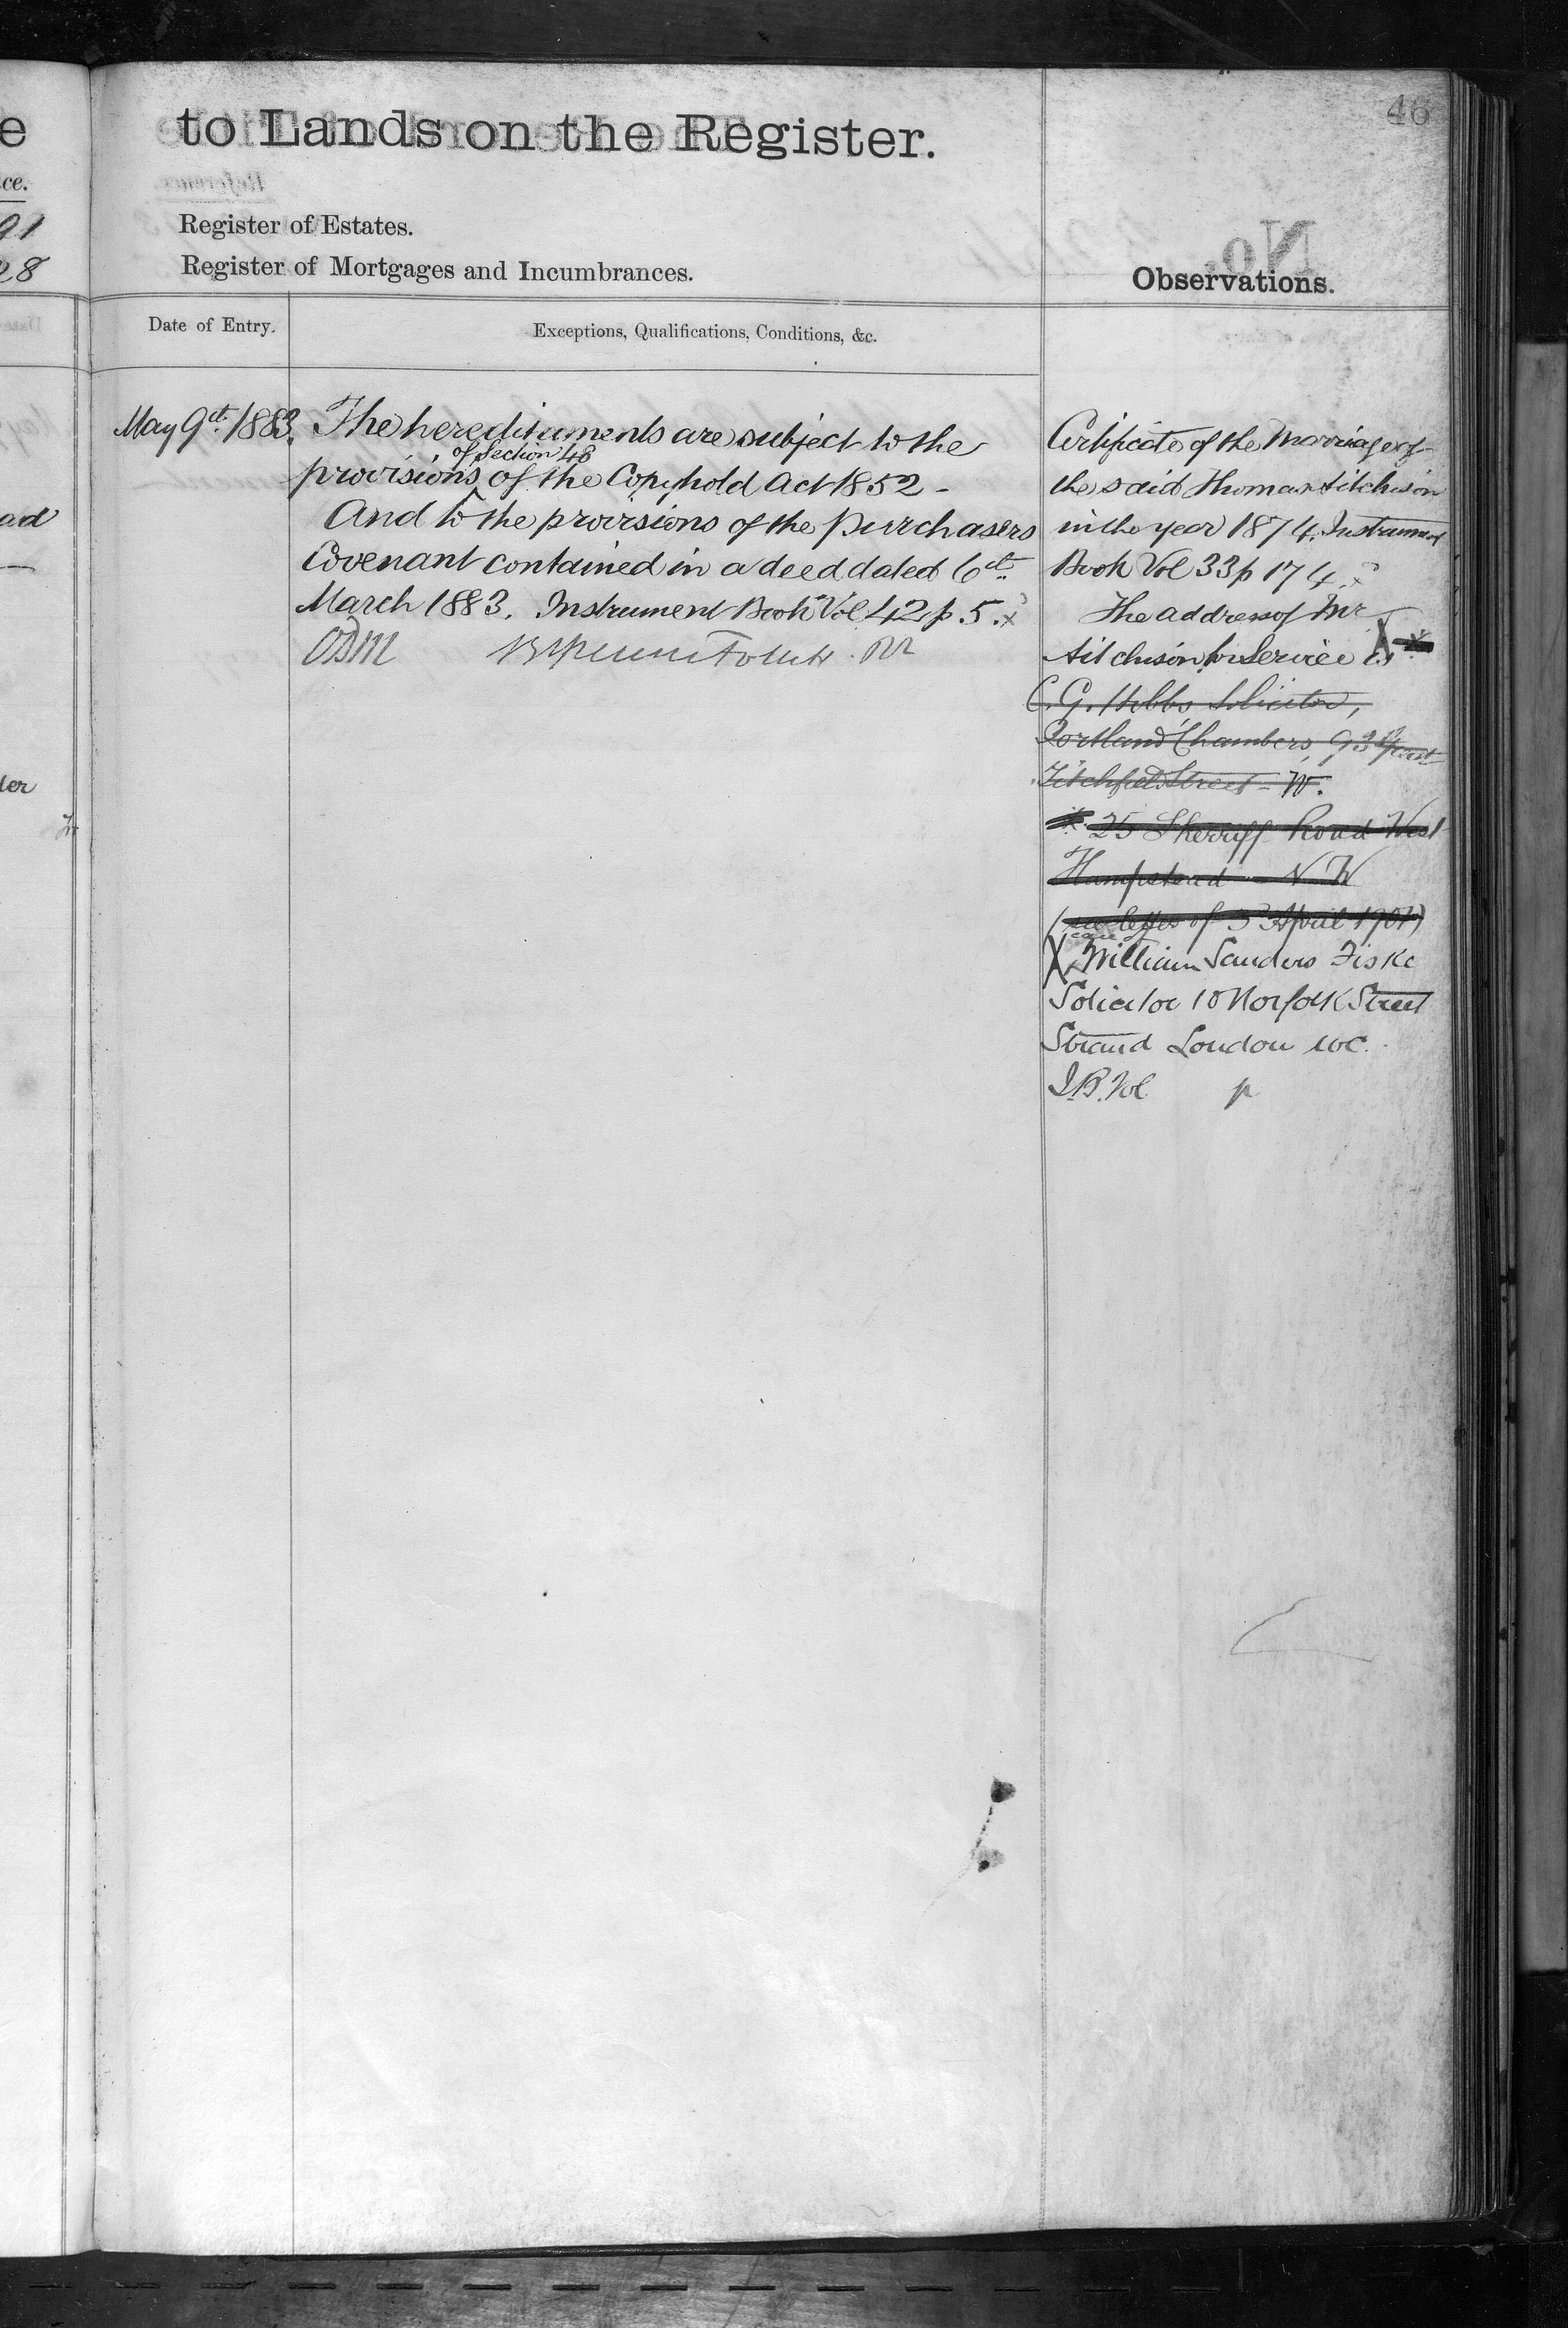 46
to Lands on the Register.
Register of Estates.
Register of Mortgages and Incumbrances.
Observations.
Date of Entry.
Exceptions, Qualifications, Conditions, &c.
May 9th 1883.
The hereditaments are subject to the
of Section 48
provisions of the Copyhold Act 1852 -
And to the provisions of the Purchasers
Covenant contained in a deed dated 6th
March 1883. Instrument Book Vol 42 p. 5. x
Certificate of the Marriage of
the said Thomas Aitchison
in the year 1874. Instrument
Book Vol 33 p 174. x
The address of Mr
Aitchison for Service is X
C. G. Hobbs Solicitor,
Portland Chambers, 93 Great
Titchfield Street - W.
25 Sherriff Road West
Hampstead N.W
(see letter of 3d April 1901)
care of
X William Sanders Fiske
Solicitor 10 Norfolk Street
Strand London WC.
I.B. Vol p
e
ce.
91
28
ad
der